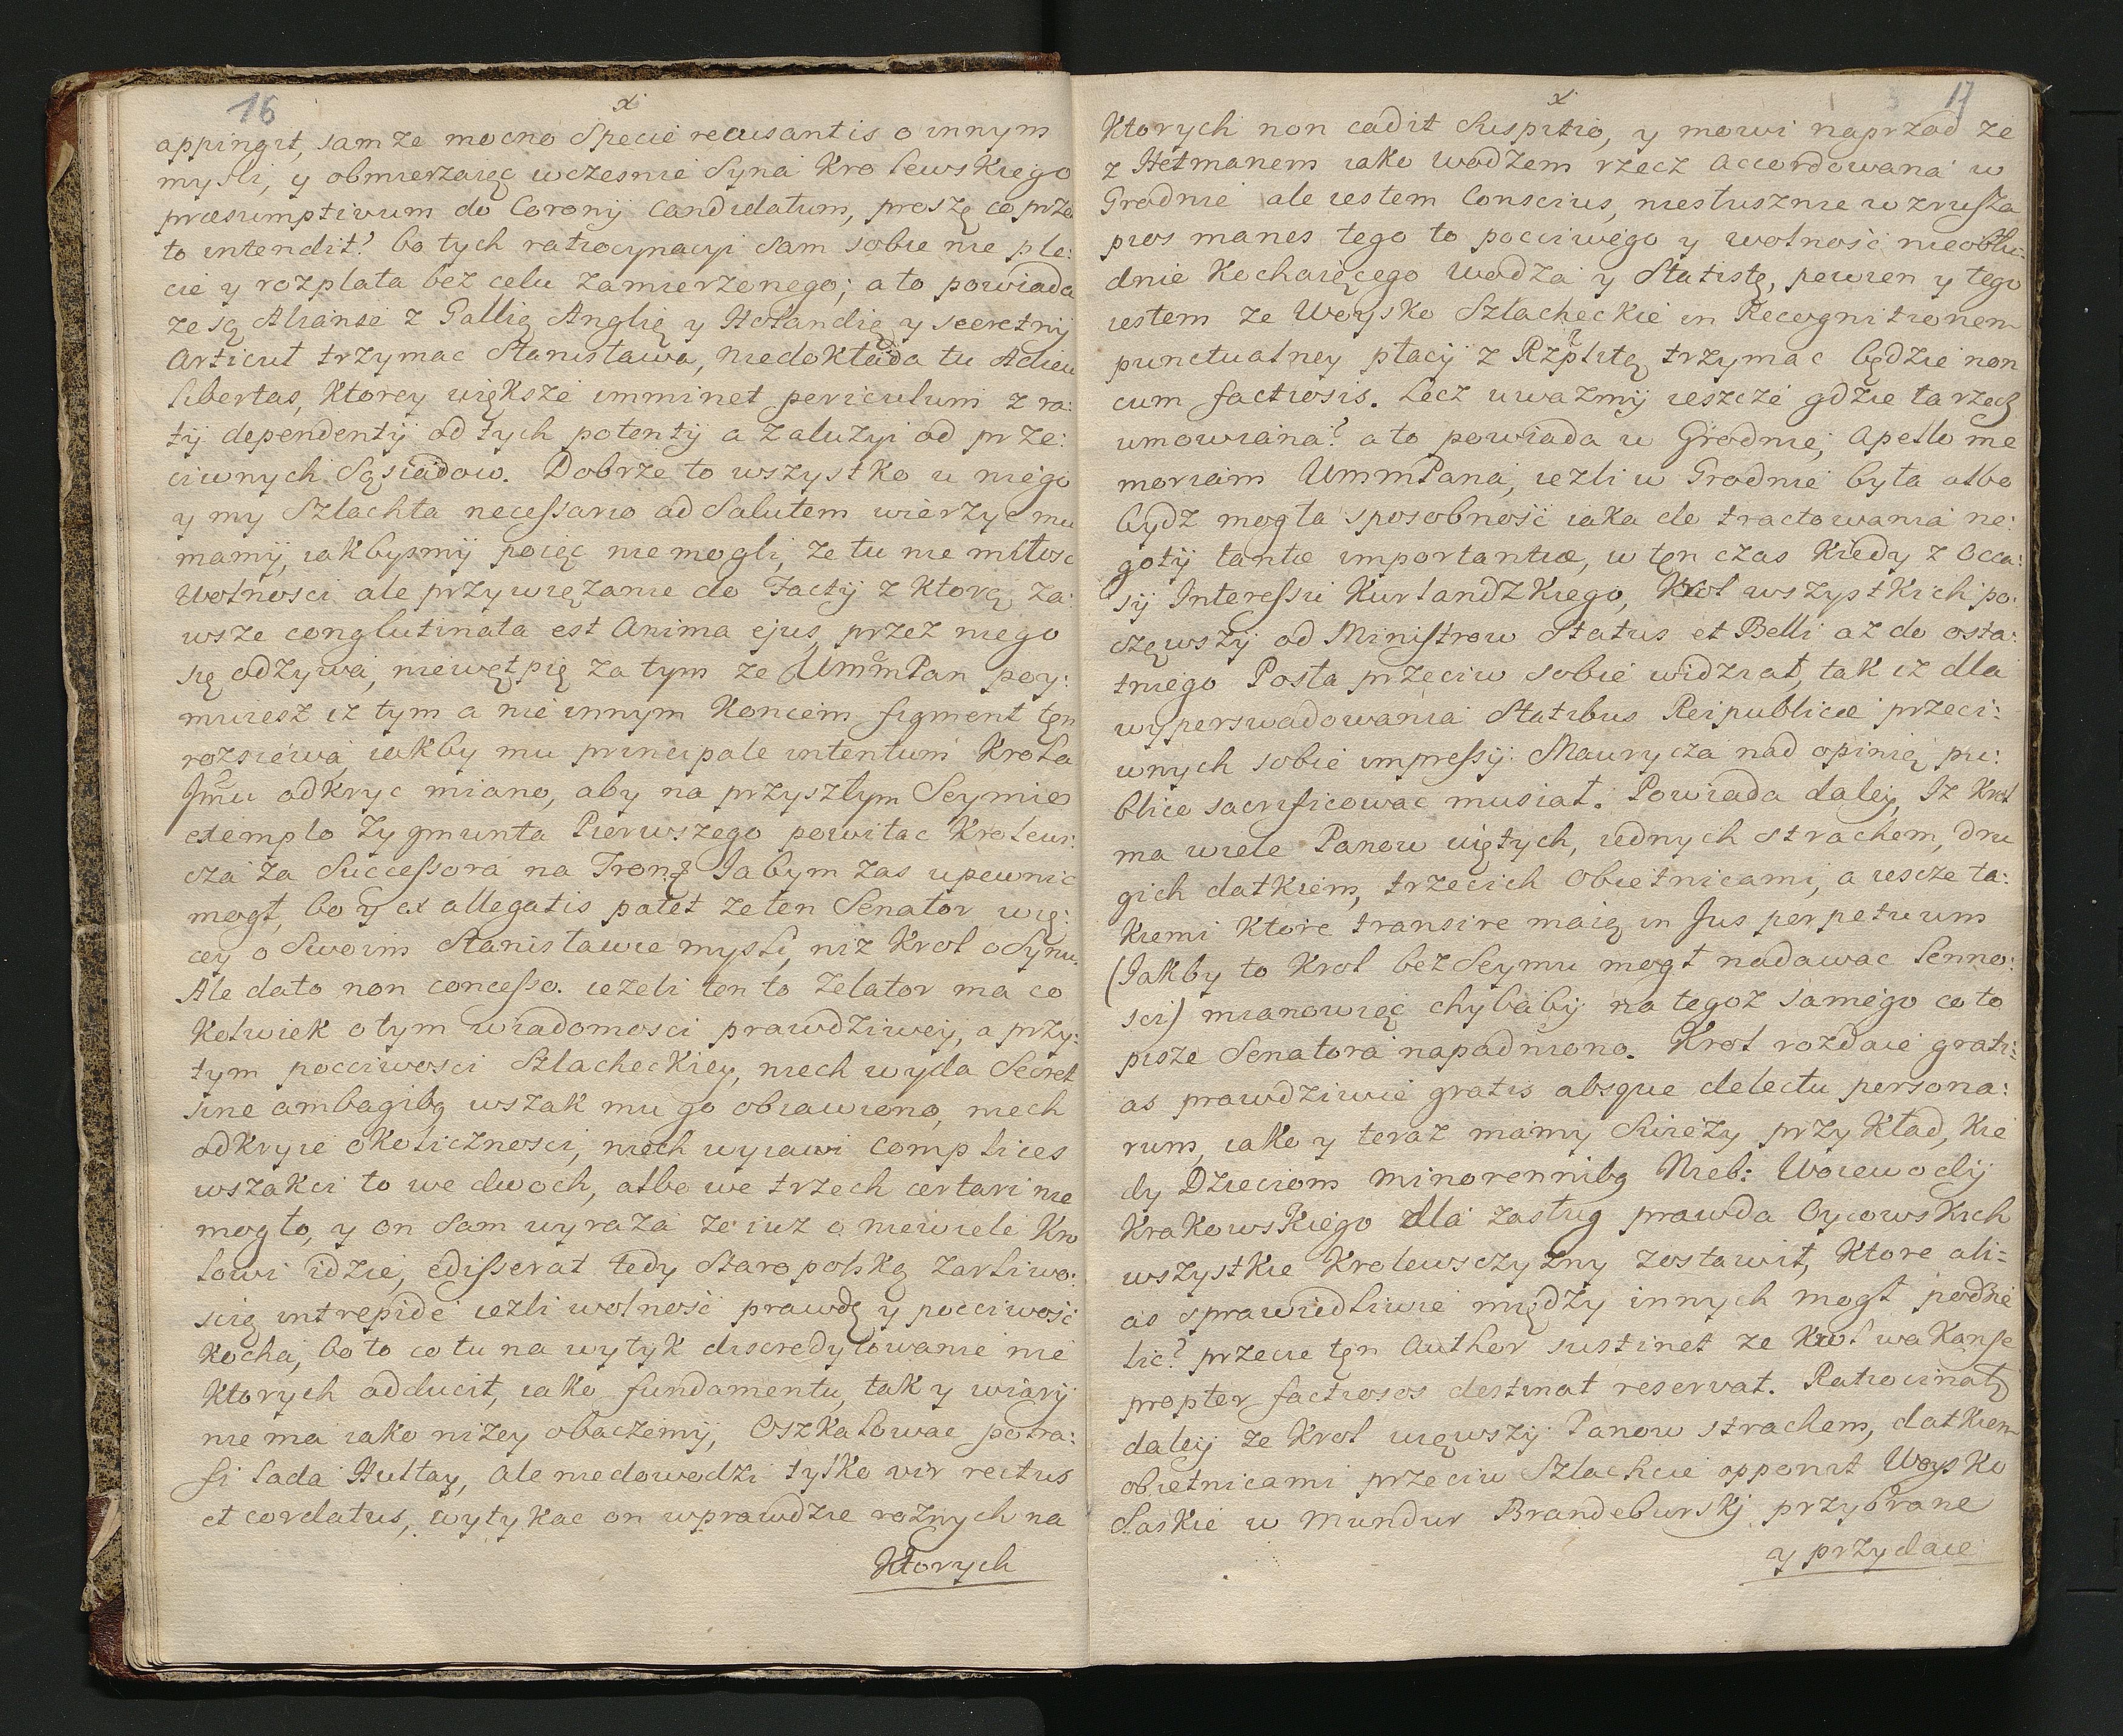 16
x
appingit, sam ze mocno Specie recusantis o innym
mysli, y obmierzaięc wczesnie Syna Krolewskiego
præsumptivum do Coronij Candidatum, proszę co przez
to intendit? bo tych ratiocynacyi sam sobie nie ple:
cie y rozplata bez celu zamierzonego; a to powiada
ze sę Alianse z Gallię Anglię y Holandię y secretnij
Articuł trzymac Stanisława, niedokłada tu Adieu
libertas, Ktorey większe imminet periculum z ra:
tij dependentij od tych potentij a zaluzyi od prze:
ciwnych Sęsiadow. Dobrze to wszystko u niego
y my Szlachta necessario ad Salutem wierzyc mu
mamij, iakbysmij poięc nie mogli, ze tu nie miłosc
Wolnosci ale przywięzanie do Factij z Ktorę za:
wsze conglutinata est Anima ejus, przez niego
się odzywa, niewętpię za tym ze UmmPan poy:
muiesz iz tym a nie innym Koncem figment tęn
rozsiewa iakby mu principale intentum Krola
Jmu odkryc miano, aby na przyszłym Seymie
exemplo Zygmunta Pierwszego powitac Krolewi:
cza za Successora na Tronę Iabym zas upewnic
mogł, bo y ex allegatis patet ze ten Senator wię:
cey o Swoim Stanisławie mysli, niz Krol o Synu.
Ale dato non concesso. iezeli ten to Zelator ma co
Kolwiek o tym wiadomosci prawdziwey, a przy:
tym pocciwosci Szlacheckiey, niech wyda Secret
sine ambagibq wszak mu go obiawiono, niech
odkryie okolicznosci, niech wyiawi complices
wszakci to we dwoch, albo we trzech certari nie
mogło, y on sam wyraza ze iuz o niewiele Kro
lowi idzie, edisserat tedy Staropolskę zarliwo:
scię intrepide iezli wolność prawdę y pocciwość
Kocha, bo to co tu na wytyk discredytowanie nie
Ktorych adducit, iako fundamentu, tak y wiarij
nie ma iako nizey obaczemij, Oszkalowac potra:
fi lada Hultay, ale niedowodzi tylko vir rectus
et cordatus, wytykac on wprawdzie roznych na
Ktorych
17
x
Ktorych non cadit Suspitio, y mowi naprzod ze
z Hetmanem iako wodzem rzecz accordowana w
Grodnie ale iestem Conscius, niesłusznie wzrusza
pios manes tego to pocciwego y wolność nieobłu:
dnie Kochaięcego Wodza y Statistę, pewien y tego
iestem ze Woysko Szlacheckie in Recognitionem
punctualney płacij z Rzplitę trzymac będzie non
cum factiosis. Lecz uwazmij ieszcze gdzie ta rzecz
umowiana? a to powiada w Grodnie; Apello me
moriam UmmPana, iezli w Grodnie była albo
bydz mogła sposobność iaka do tractowania ne:
gotij tantæ importantiæ, w ten czas Kiedy z Occa:
sij Interessu Kurlandzkiego, Krol wszystkich po:
częwszy od Ministrow Status et Belli az do osta:
tniego Posła przeciw sobie widział, tak iz dla
wyperswadowania Statibus Reipublicæ przeci:
wnych sobie impressij Maurycza nad opinię pu:
blice sacrificowac musiał. Powiada daley, Iz Krol
ma wiele Panow uiętych, iednych strachem, dru
gich datkiem, trzecich obietnicami, a iescze ta:
Kiemi Ktore transire maię in Jus perpetuum
(Iakby to Krol bez Seymu mogł nadawac lenno:
sci) mianowięc chybaby na tegoz samego co to
pisze Senatora napadniono. Krol rozdaie grati:
as prawdziwie gratis absque delectu persona:
rum, iako y teraz mamy Swiezy przykład, Kie
dy Dzieciom minorennibq Nieb: Woiewodij
Krakowskiego dla zasług prawda Oycowskich
wszystkie Krolewsczyzny zostawił, Ktore ali=
as sprawiedliwie między innych mogł podzie
lic? przecie ten Author sustinet ze Krol wakanse
propter factiosos destinat reservat. Ratiocinatq
daley ze Krol uięwszy Panow strachem, datkiem
obietnicami przeciw Szlachcie opponit Woysko
Saskie w Mundur Brandeburskj przybrane
y przydaie